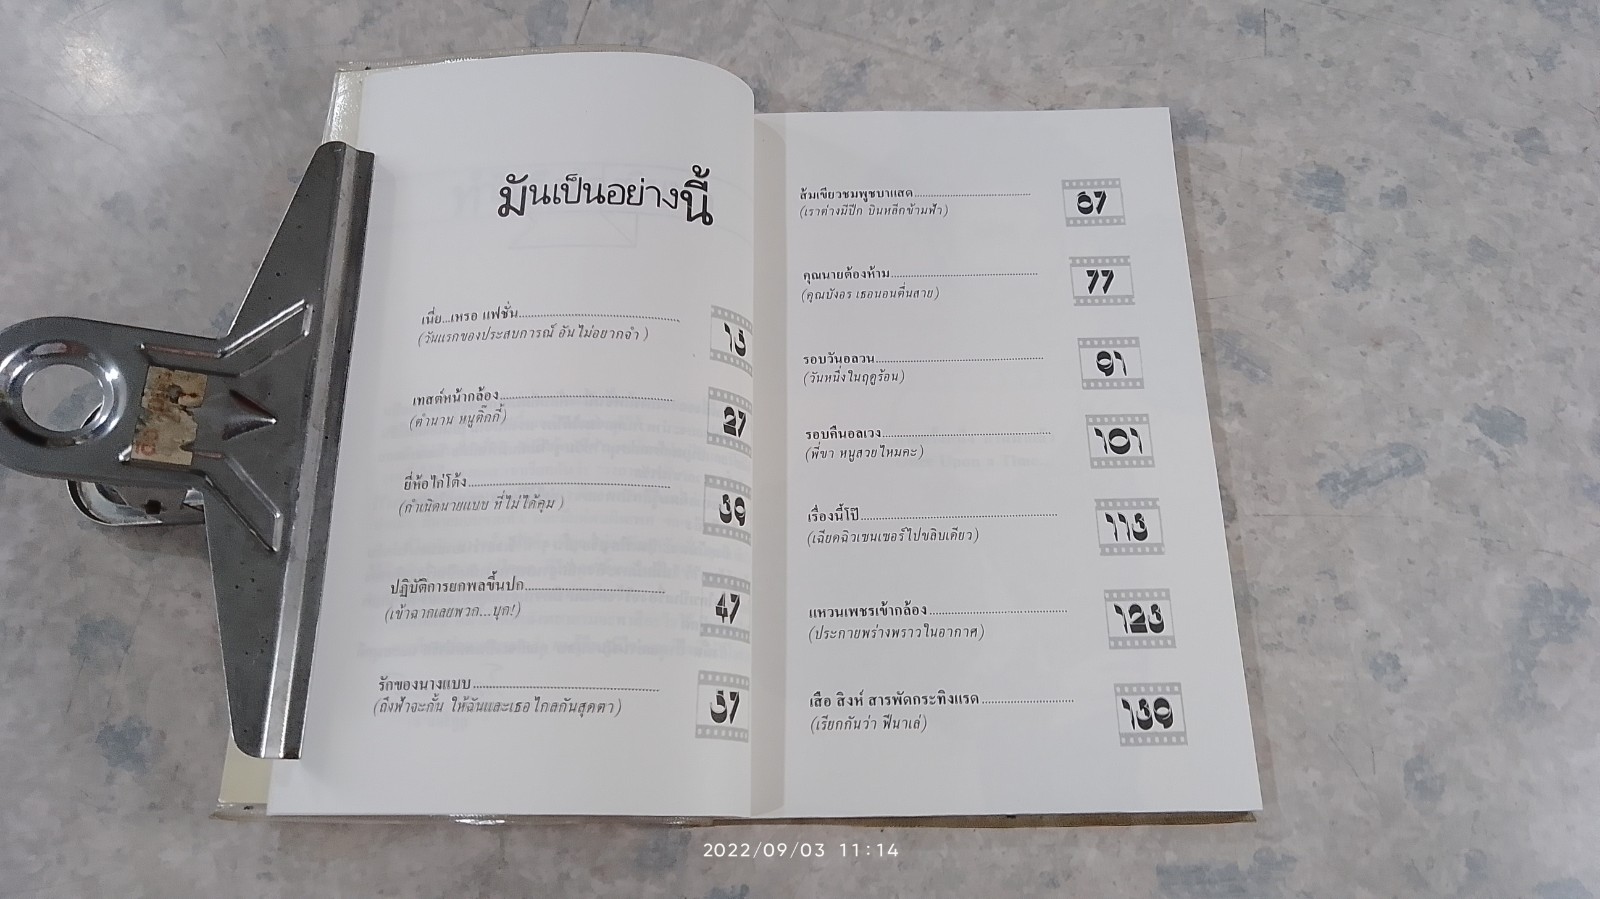 มันเป็นอย่างนี้
เนี่ย...เหรอ แฟชั่น 13
(วันแรกของประสบการณ์ อันไม่อยากจำ)
เทสต์หน้ากล้อง 27
(ตำนาน หนูติ๊กกี้)
ยี่ห้อไก่โต้ง 39
(กำเนิดนายแบบ ที่ไม่ได้คุม)
ปฏิบัติการยกพลขึ้นปก 47
(เข้าฉากเลยพวก...บุก!)
รักของนางแบบ 57
(ถึงฟ้าจะกั้น ให้ฉันและเธอไกลกันสุดตา)
ส้มเขียวชมพูชบาแสด 67
(เราต่างมีปีก บินหลีกข้ามฟ้า)
คุณนายต้องห้าม 77
(คุณบังอร เธอนอนตื่นสาย)
รอบวันอลวน 91
(วันหนึ่งในฤดูร้อน)
รอบคืนอลเวง 101
(พี่ขา หนูสวยไหมคะ)
เรื่องนี้โป๊ 113
(เฉียดฉิวเซนเซอร์ไปขลิบเดียว)
แหวนเพชรเข้ากล้อง 123
(ประกายพร่างพราวในอากาศ)
เสือ สิงห์ สารพัดกระทิงแรด 139
(เรียกกันว่า ฟีนาเล่)
2022/09/03 11:14